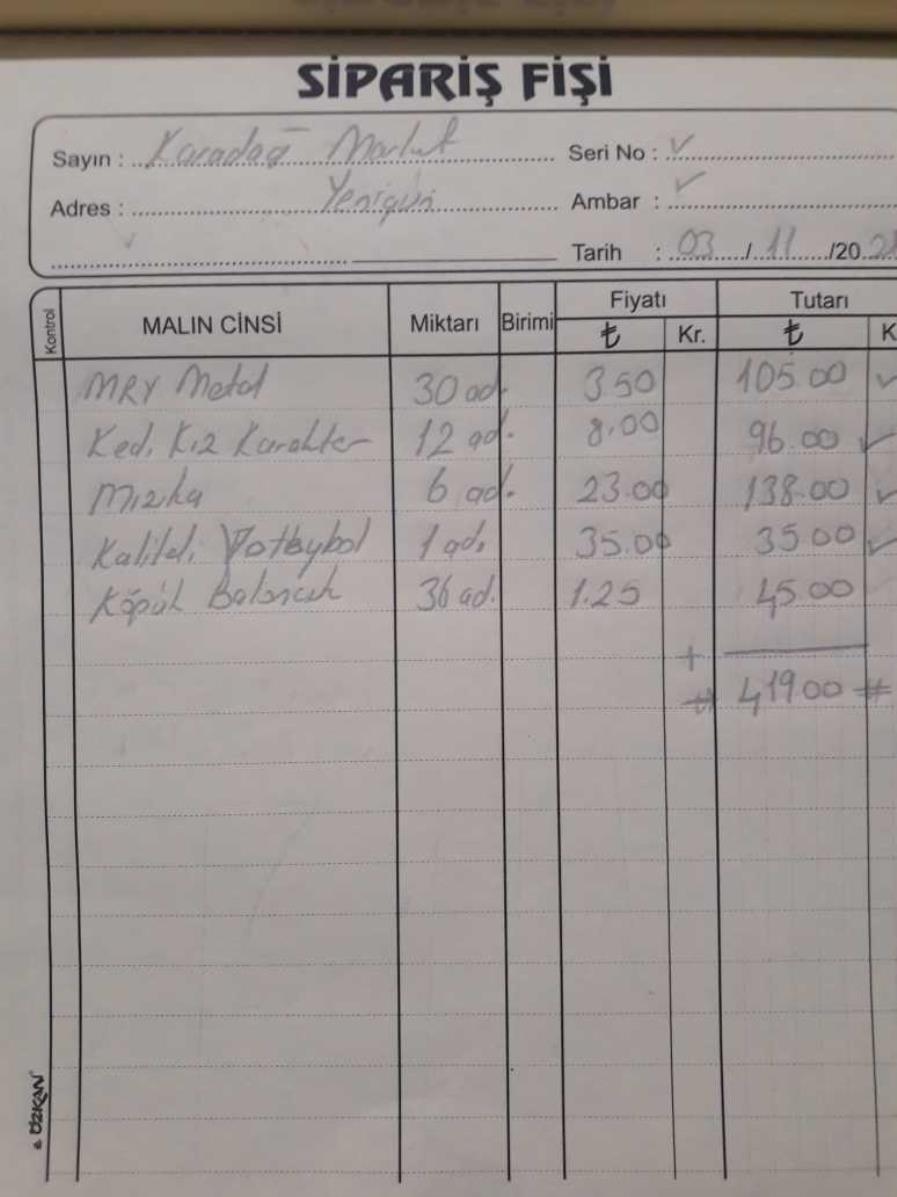 SİPARİŞ FİŞİ
Sayın : Karadağ Market Seri No :
Adres : Yenigün Ambar :
Tarih : 03 / 11 /20
Kontrol MALIN CİNSİ Miktarı Birimi Fiyatı Tutarı
₺ Kr. ₺ K
MRY Metal 30 ad. 3.50 105.00
Ked. Kız Karakter 12 ad. 8.00 96.00
Mızıka 6 ad. 23.00 138.00
Kaliteli 1 ad. 35.00 35.00
Köpük 36 ad. 1.25 45.00
+
# 419.00 #
ÖZKAN